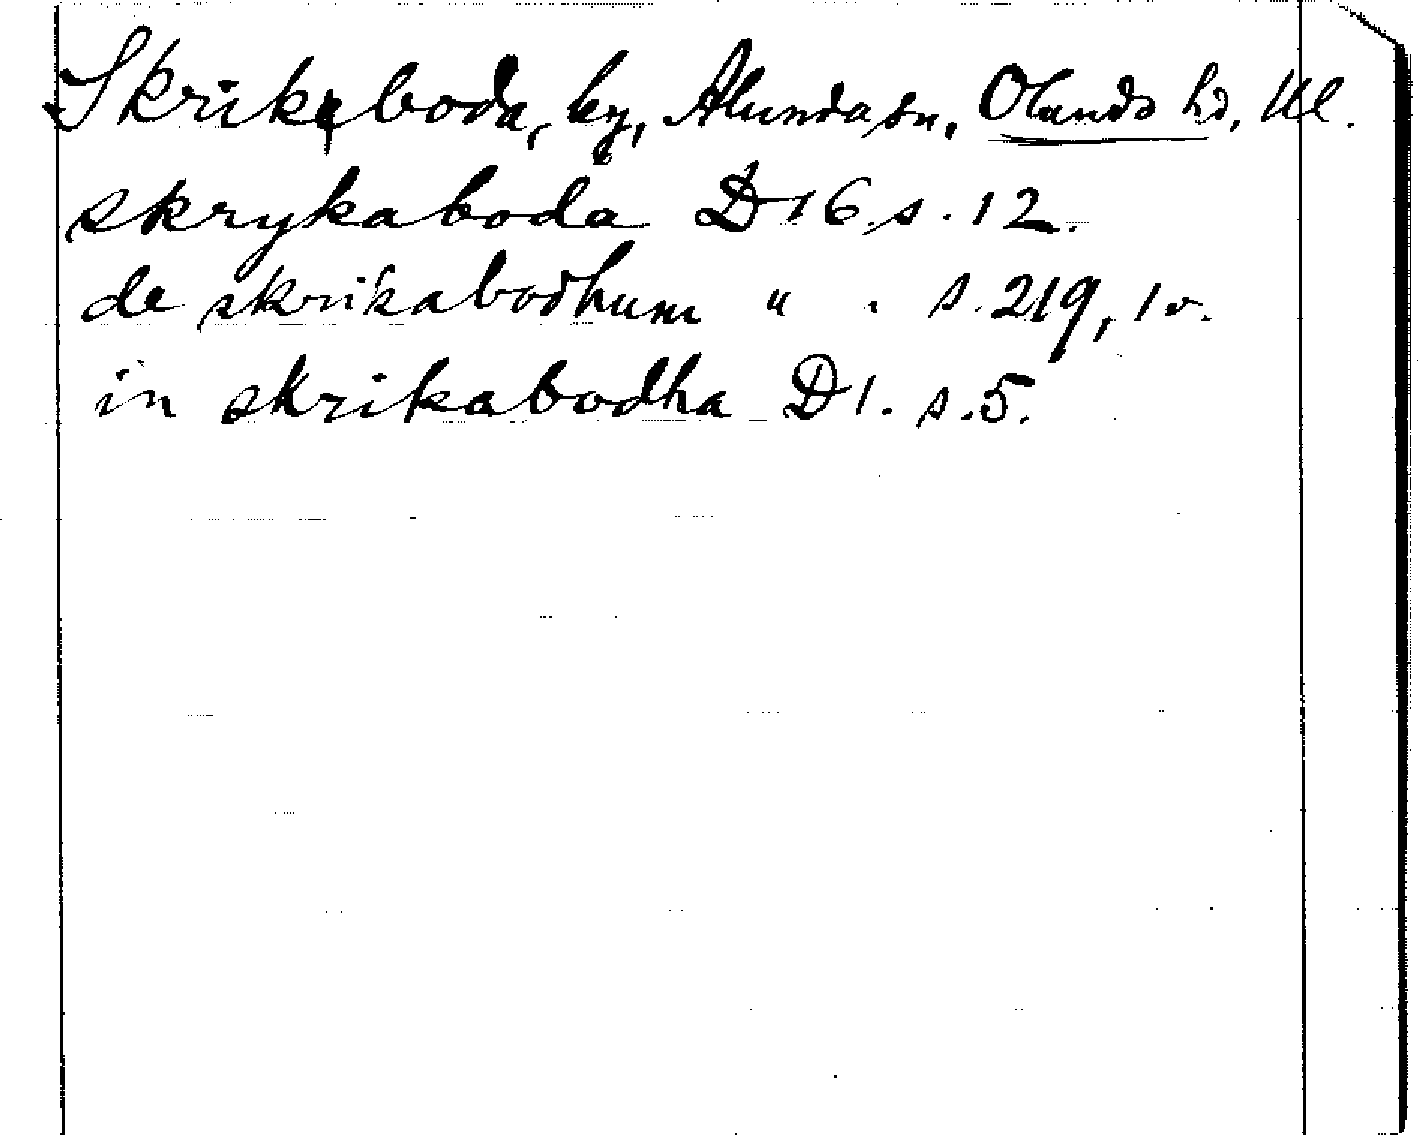 Skrikeboda, by, Alunda sn, Olands hd, Ul.
skrykaboda D 16 s. 12.
de skrikabodhum " . s. 219, 1 v.
in skrikabodha D 1. s. 5.